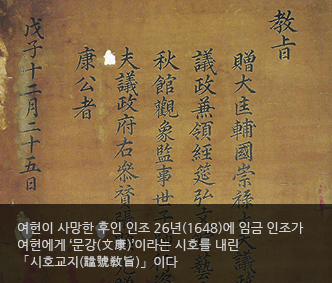 教旨
贈大匡輔國崇祿大
議政兼領經筵弘
秋館觀象監事世子
夫議政府右參贊張
康公者
戊子十二月二十五日
여헌이 사망한 후인 인조 26년(1648)에 임금 인조가
여헌에게 '문강(文康)'이라는 시호를 내린
「시호교지(諡號敎旨)」이다